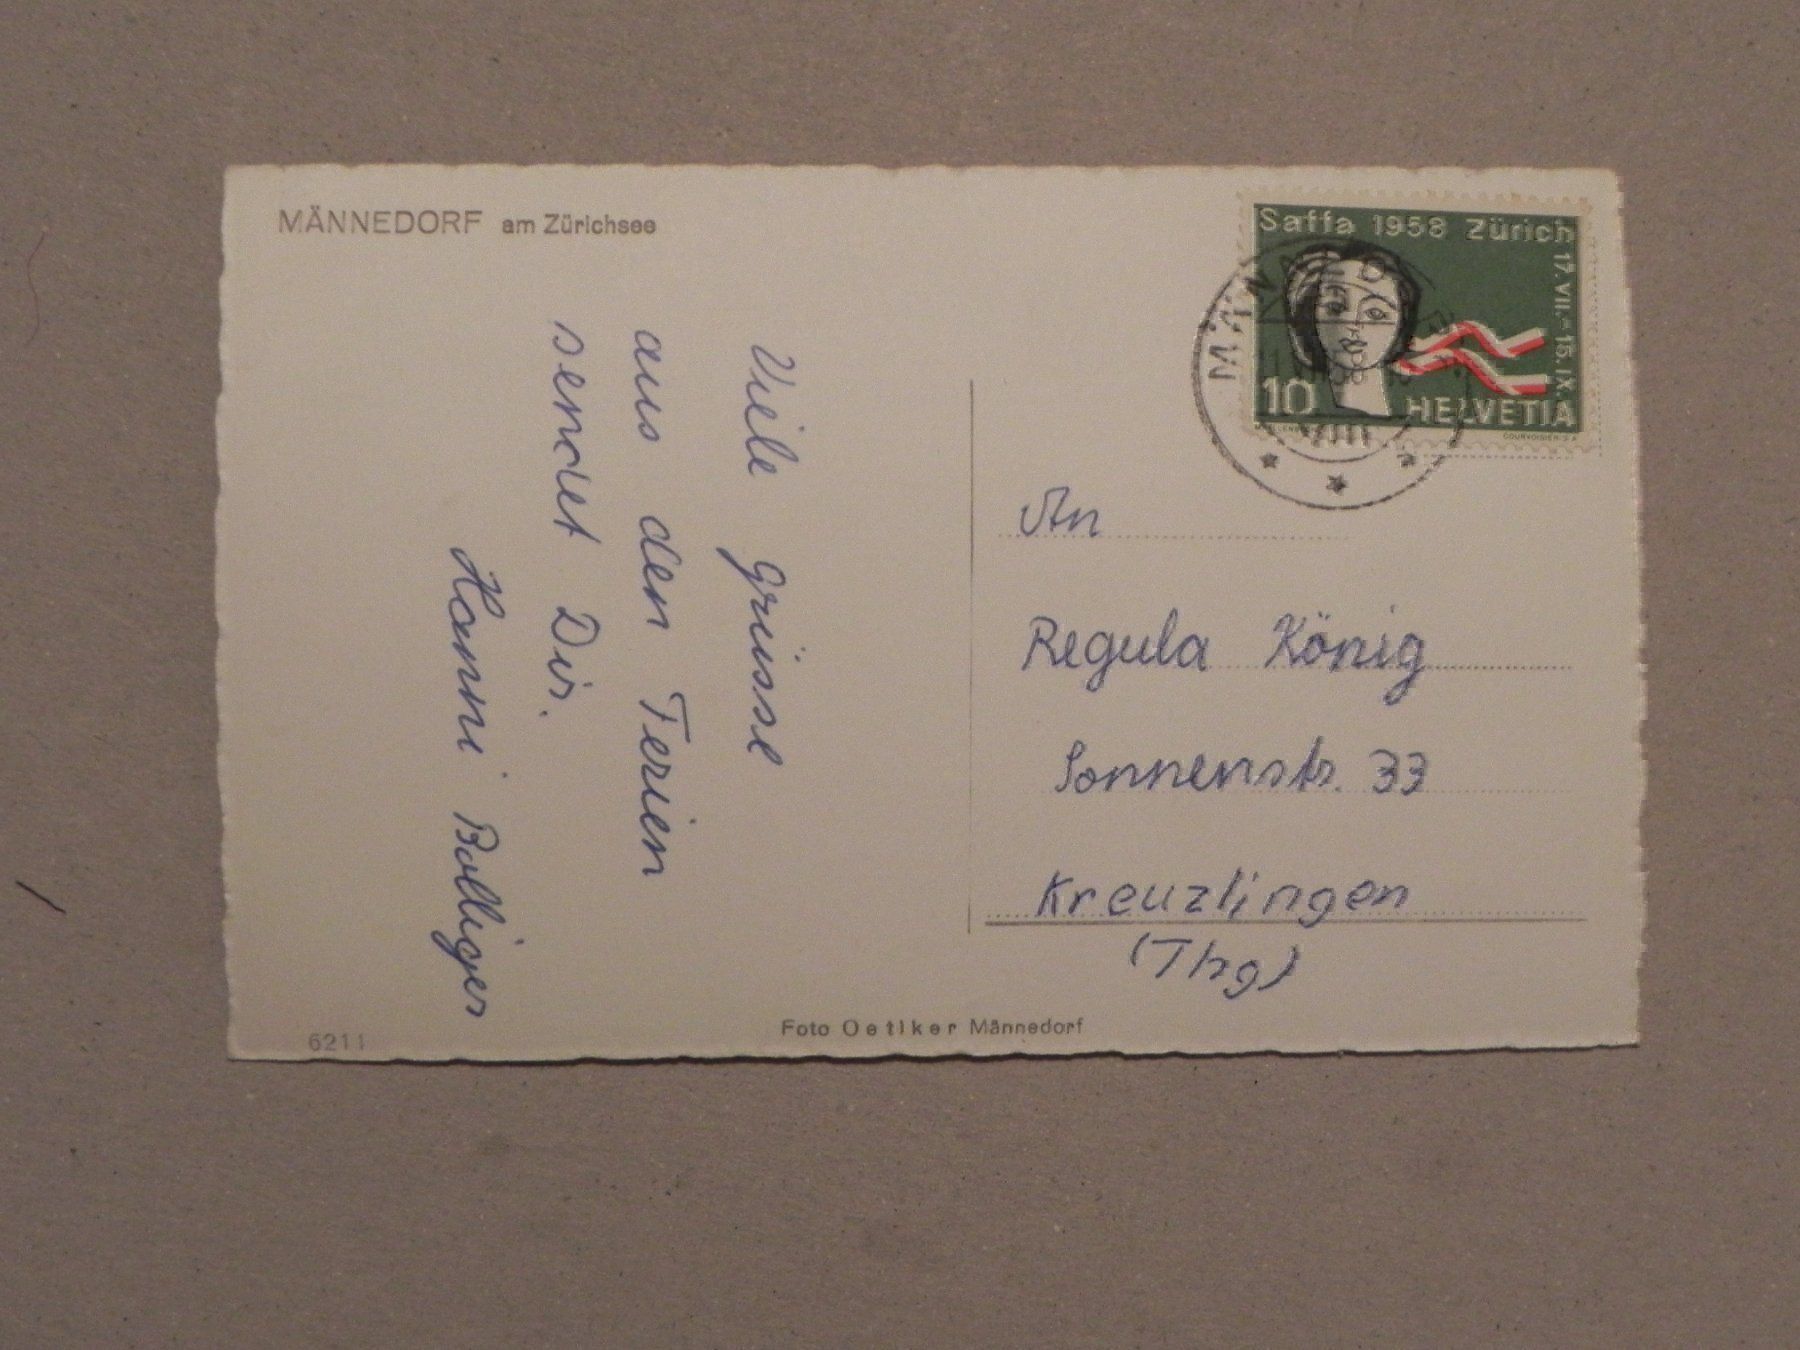 MÄNNEDORF am Zürichsee
Viele Grüsse
aus den Ferien
sendet Dir.
Hanni Bolliger
6211
Foto Oetiker Männedorf
Saffa 1958 Zürich
17. VII. – 15. IX.
10
HELVETIA
COURVOISIER S.A.
MÄNNEDORF
VIII
An
Regula König
Sonnenstr. 33
Kreuzlingen
(Thg)